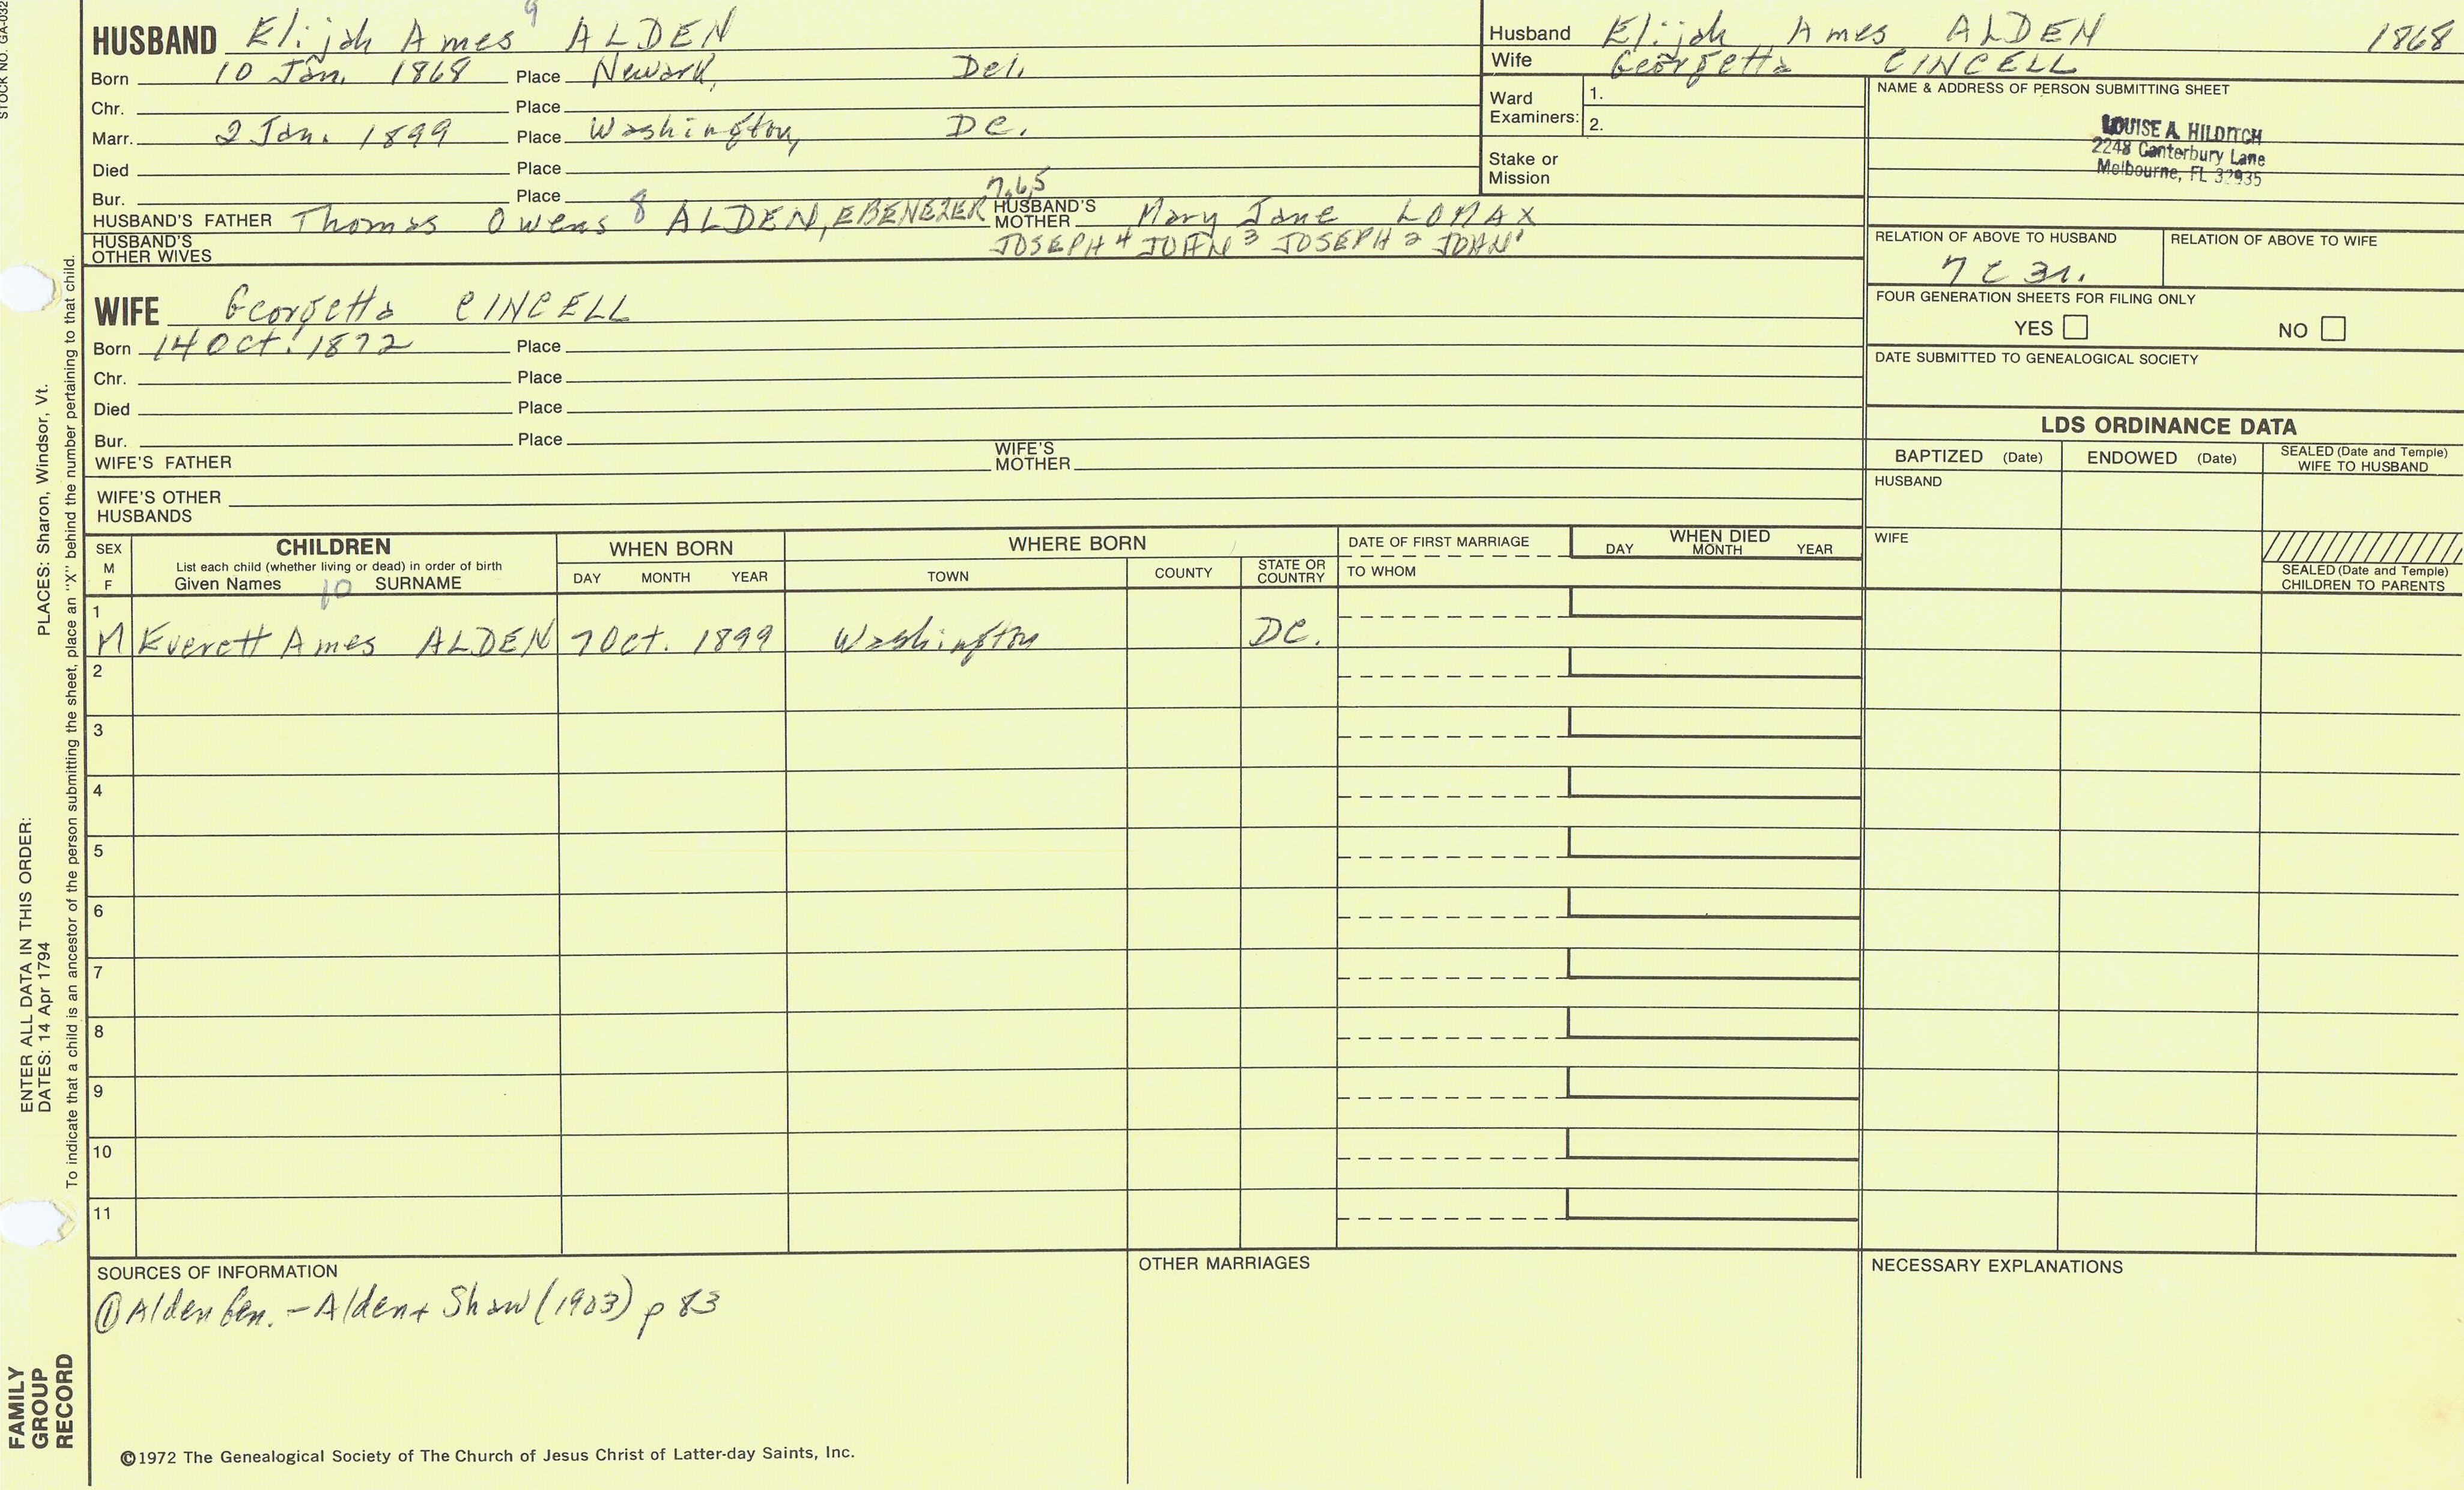 STOCK NO. GA-032
PLACES: Sharon, Windsor, Vt.
ENTER ALL DATA IN THIS ORDER:
DATES: 14 Apr 1794
To indicate that a child is an ancestor of the person submitting the sheet, place an "X" behind the number pertaining to that child.
FAMILY
GROUP
RECORD
9
HUSBAND Elijah Ames ALDEN
Born 10 Jan. 1868 Place Newark, Del.
Chr. Place
Marr. 2 Jan. 1899 Place Washington, DC.
Died Place
Bur. Place
7,6,5
HUSBAND'S FATHER Thomas Owens 8 ALDEN, EBENEZER HUSBAND'S MOTHER Mary Jane LOMAX
HUSBAND'S OTHER WIVES JOSEPH 4 JOHN 3 JOSEPH 2 JOHN 1
WIFE Georgetta CINCELL
Born 14 Oct. 1872 Place
Chr. Place
Died Place
Bur. Place
WIFE'S FATHER WIFE'S MOTHER
WIFE'S OTHER HUSBANDS
Husband Elijah Ames ALDEN 1868
Wife Georgetta CINCELL
Ward Examiners: 1.
2.
Stake or Mission
NAME & ADDRESS OF PERSON SUBMITTING SHEET
LOUISE A. HILDITCH
2248 Canterbury Lane
Melbourne, FL 32935
RELATION OF ABOVE TO HUSBAND RELATION OF ABOVE TO WIFE
7 C 3r.
FOUR GENERATION SHEETS FOR FILING ONLY
YES NO
DATE SUBMITTED TO GENEALOGICAL SOCIETY
LDS ORDINANCE DATA
BAPTIZED (Date) ENDOWED (Date) SEALED (Date and Temple) WIFE TO HUSBAND
HUSBAND
WIFE
SEALED (Date and Temple) CHILDREN TO PARENTS
SEX M F CHILDREN WHEN BORN WHERE BORN DATE OF FIRST MARRIAGE WHEN DIED
List each child (whether living or dead) in order of birth
Given Names 10 SURNAME DAY MONTH YEAR TOWN COUNTY STATE OR COUNTRY TO WHOM DAY MONTH YEAR
1
M Everett Ames ALDEN 7 Oct. 1899 Washington DC.
2
3
4
5
6
7
8
9
10
11
SOURCES OF INFORMATION
① Alden Gen. - Alden + Shaw (1903) p 83
OTHER MARRIAGES
NECESSARY EXPLANATIONS
©1972 The Genealogical Society of The Church of Jesus Christ of Latter-day Saints, Inc.